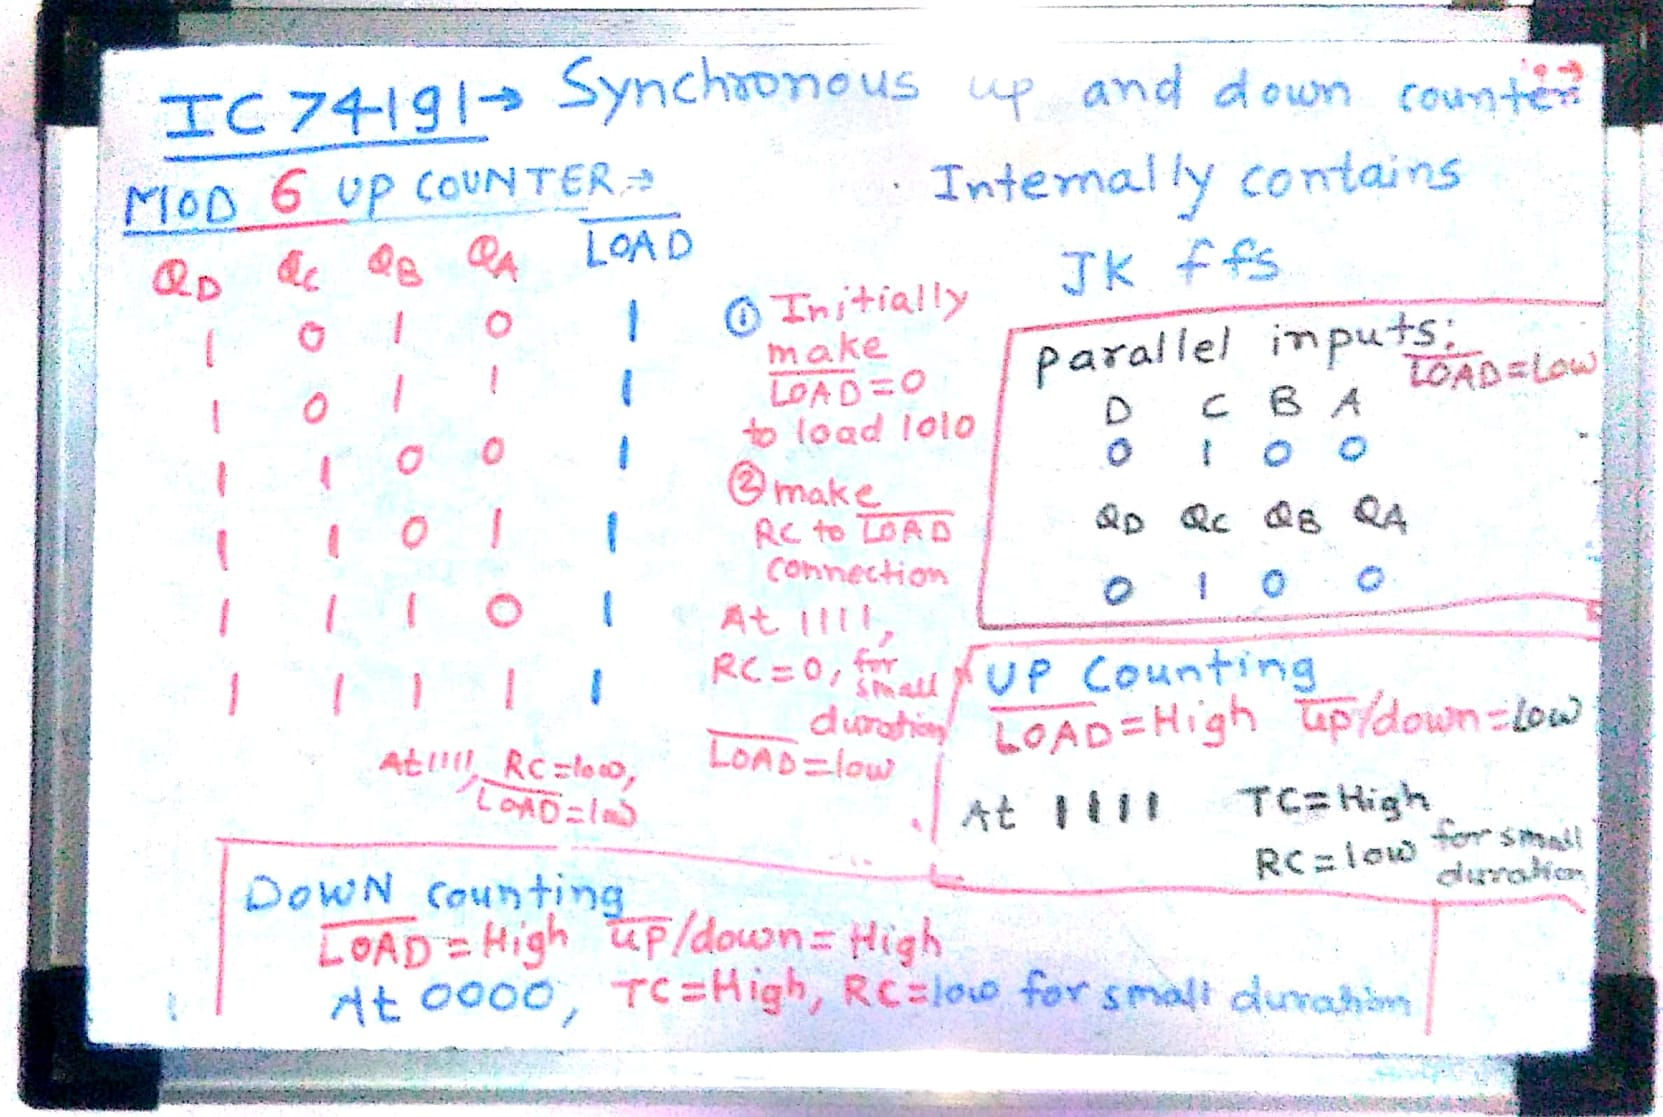 IC 74191→ Synchronous up and down counter
MOD 6 UP COUNTER→
QD QC QB QA L̅O̅A̅D̅
1 0 1 0 1
1 0 1 1 1
1 1 0 0 1
1 1 0 1 1
1 1 1 0 1
1 1 1 1 1
At 1111, RC=low,
L̅O̅A̅D̅=low
① Initially
make
L̅O̅A̅D̅=0
to load 1010
② make
RC to L̅O̅A̅D̅
connection
At 1111,
RC=0, for
small
duration
L̅O̅A̅D̅=low
Internally contains
JK ffs
parallel inputs:
L̅O̅A̅D̅=Low
D C B A
0 1 0 0
QD QC QB QA
0 1 0 0
UP Counting
L̅O̅A̅D̅=High u̅p̅/down=Low
At 1111 TC=High
RC=low for small
duration
DOWN counting
L̅O̅A̅D̅=High u̅p̅/down=High
At 0000, TC=High, RC=low for small duration